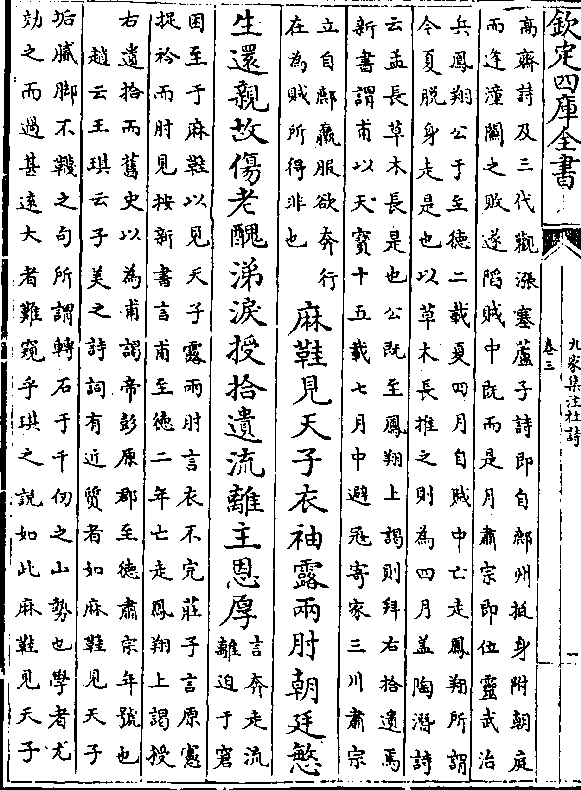 欽定四庫全書
九家集注杜詩
卷三
一
高齋詩及三代觀漲塞蘆子詩即自鄜州挺身附朝庭
而逢潼關之敗遂陷賊中既而是月肅宗即位靈武治
兵鳳翔公于至德二載夏四月自賊中亡走鳳翔所謂
今夏脫身走是也以草木長推之則為四月盖陶潛詩
云孟長草木長是也公既至鳳翔上謁則拜右拾遺焉
新書謂甫以天寶十五載七月中避寇寄家三川肅宗
立自鄜羸服欲奔行
在為賊所得非也
麻鞋見天子衣袖露兩肘朝廷慜
生還親故傷老醜涕淚授拾遺流離主恩厚
言奔走流
離迫于窘
困至于麻鞋以見天子露兩肘言衣不完莊子言原憲
捉衿而肘見按新書言甫至德二年亡走鳳翔上謁授
右遺拾而舊史以為甫謁帝彭原郡至德肅宗年號也
趙云王琪云子美之詩詞有近質者如麻鞋見天子
垢膩脚不韈之句所謂轉石于千仞之山勢也學者尤
効之而過甚遠大者難窺乎琪之說如此麻鞋見天子